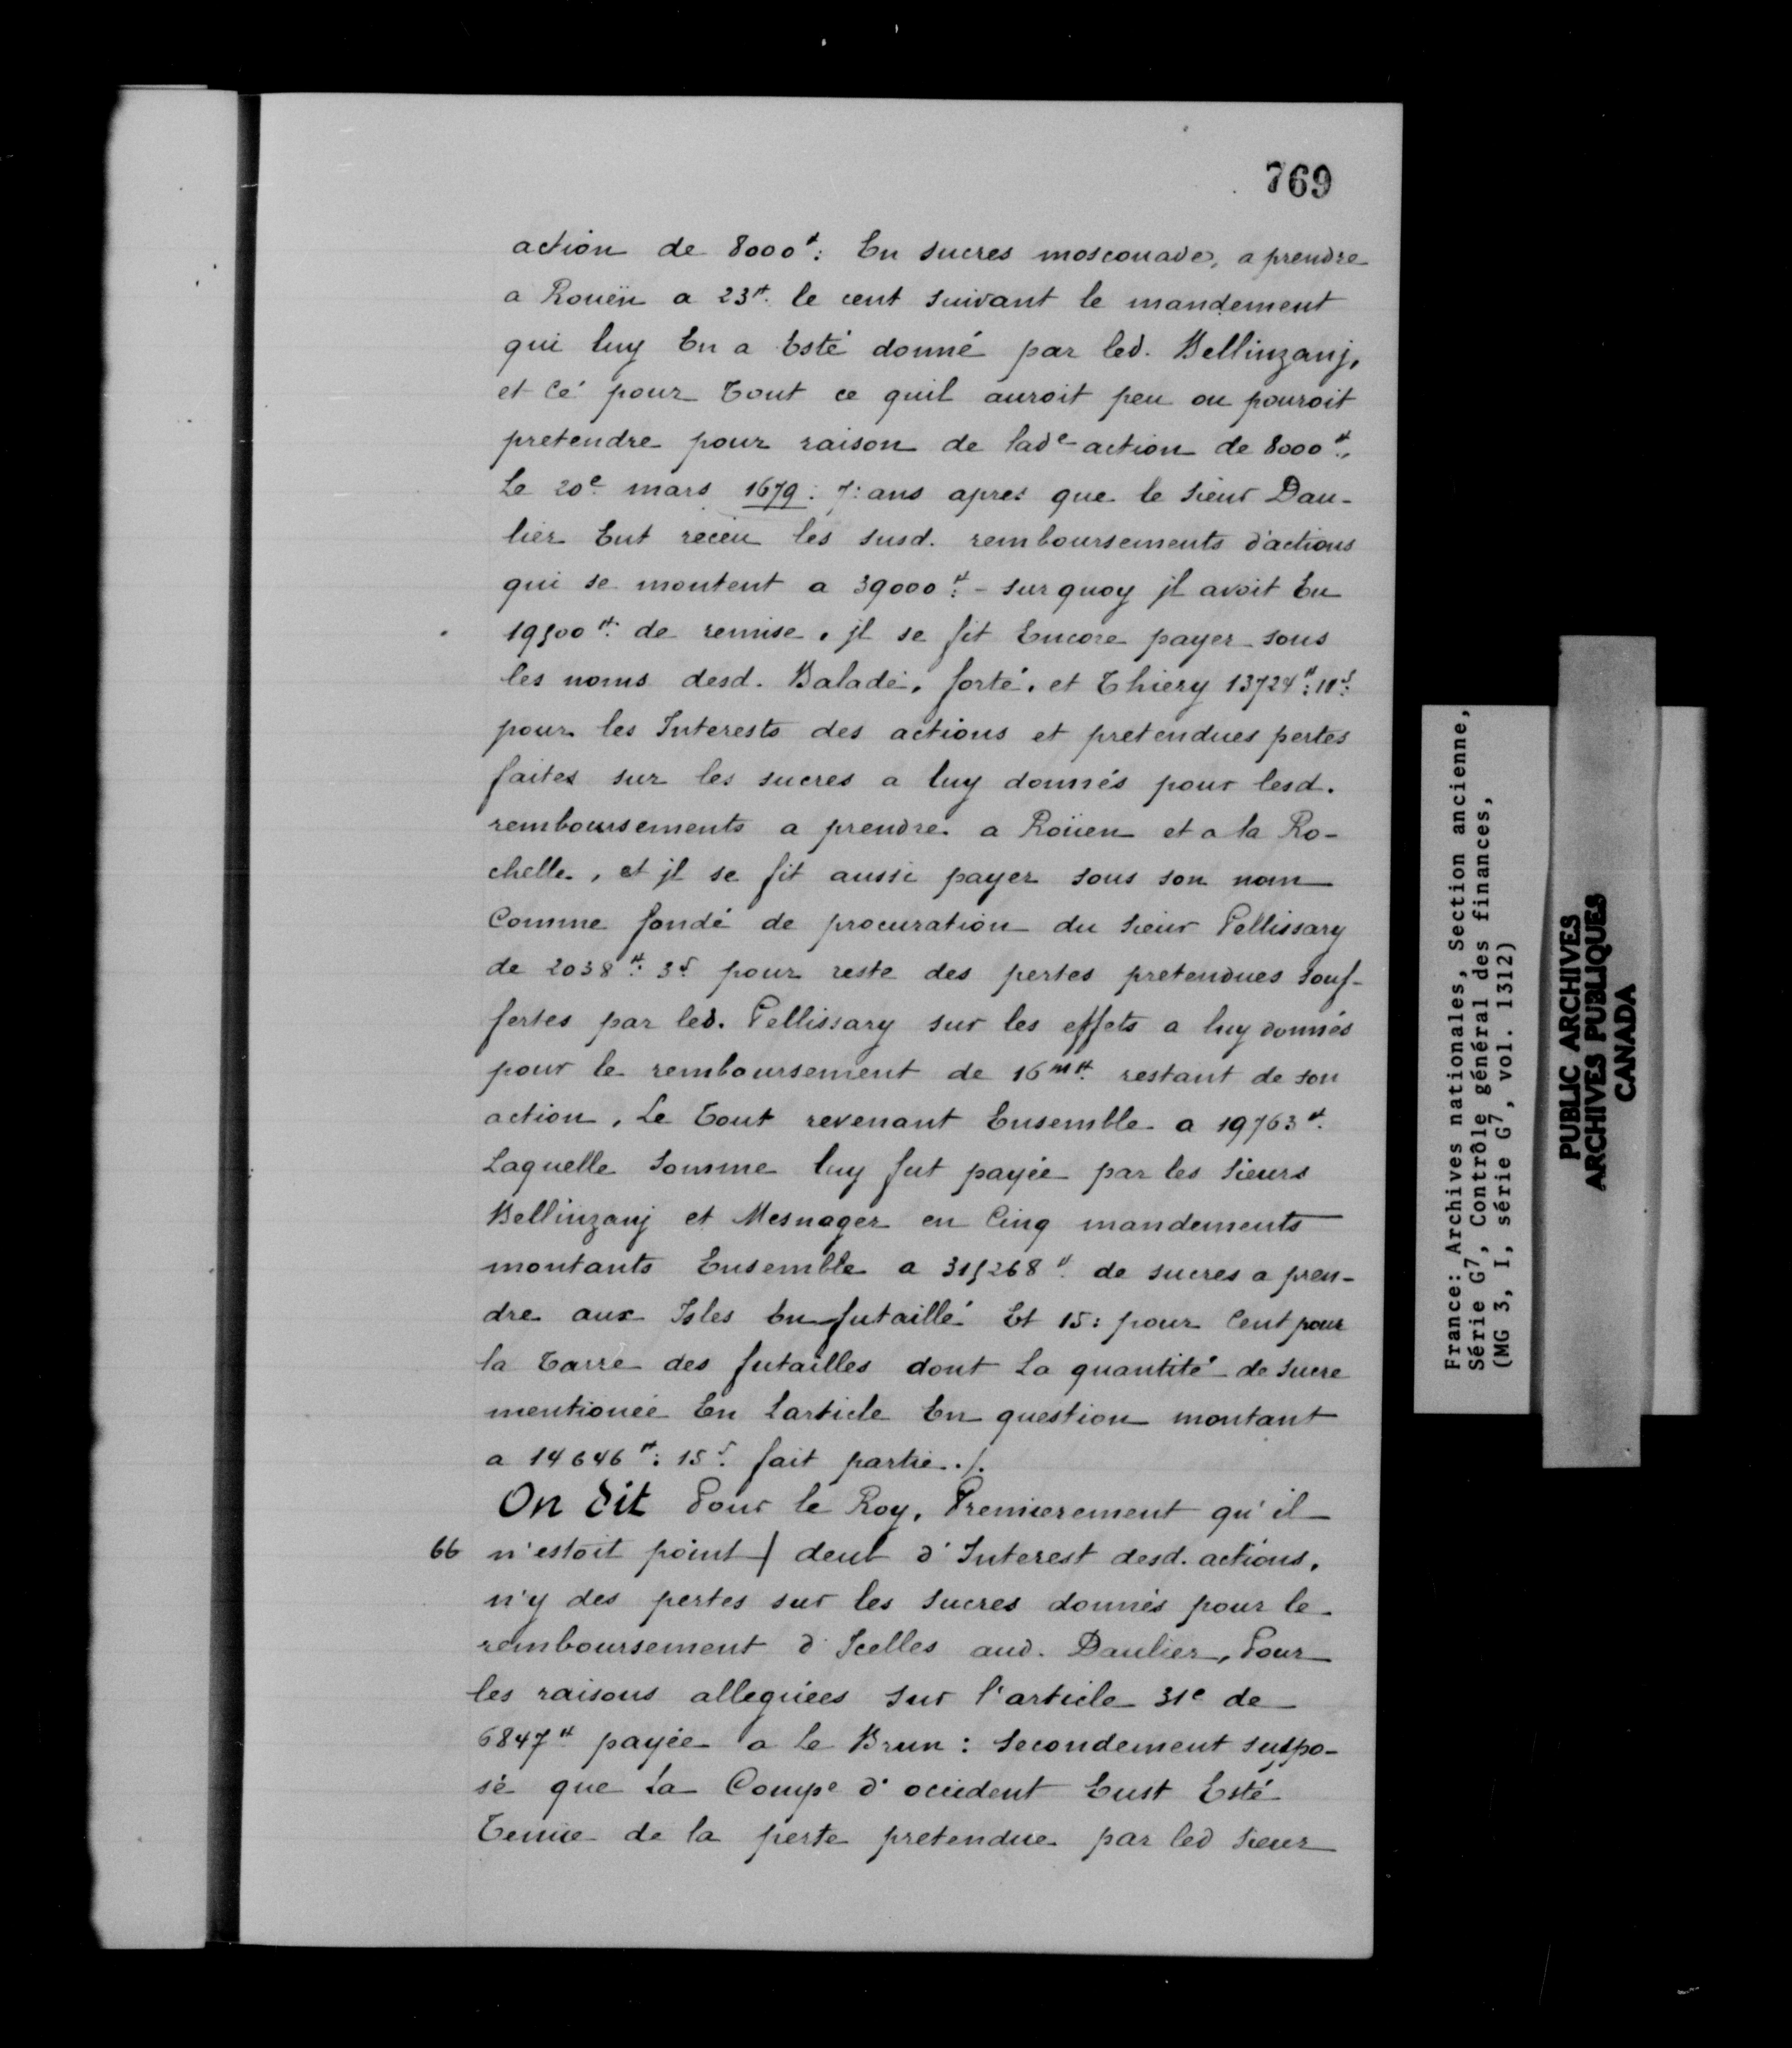 769
action de 8000#: En sucres mosconade, a prendre
a Rouën a 23#. le cent suivant le mandement
qui luy En a Esté donné par led. Bellinzanj,
et Cé pour Tout ce quil auroit peu ou pouroit
pretendre pour raison de lade action de 8000#.
Le 20e mars 1679: 7: ans apres que le sieur Dau-
lier Eut receu les susd. remboursements d'actions
qui se montent a 39000#: - sur quoy jl avoit Eu
19500# de remise, jl se fit Encore payer sous
les noms desd. Baladé, forté, et Thiery 13724#: 10s:
pour les Interests des actions et pretendues pertes
faites sur les sucres a luy donnés pour lesd.
remboursements a prendre a Roüen et a la Ro-
chelle, et jl se fit aussi payer sous son nom
Comme fondé de procuration du sieur Pellissary
de 2038#: 3s pour reste des pertes pretendues souf-
fertes par led. Pellissary sur les effets a luy donnés
pour le remboursement de 16m# restant de son
action, Le Tout revenant Ensemble a 19763#.
Laquelle somme luy fut payée par les sieurs
Bellinzanj et Mesnager en Cinq mandements
montants Ensemble a 315268# de sucres a pren-
dre aux Isles En futaillé Et 15: pour Cent pour
la Tarre des futailles dont La quantité de sucre
mentionée En Larticle En question montant
a 14646#: 15s. fait partie ./.
On dit Pour le Roy, Premierement qu'il
66 n'estoit point | deub d'Interest desd. actions,
n'y des pertes sur les sucres donnés pour le
remboursement d'Icelles aud. Daulier, Pour
les raisons alleguées sur l'article 31e de
6847# payée a Le Brun: secondement suspo-
sé que La Compe d'occident Eust Esté
Tenue de la perte pretendue par led sieur
France: Archives nationales, Section ancienne,
Série G7, Contrôle général des finances,
(MG 3, I, série G7, vol. 1312)
PUBLIC ARCHIVES
ARCHIVES PUBLIQUES
CANADA